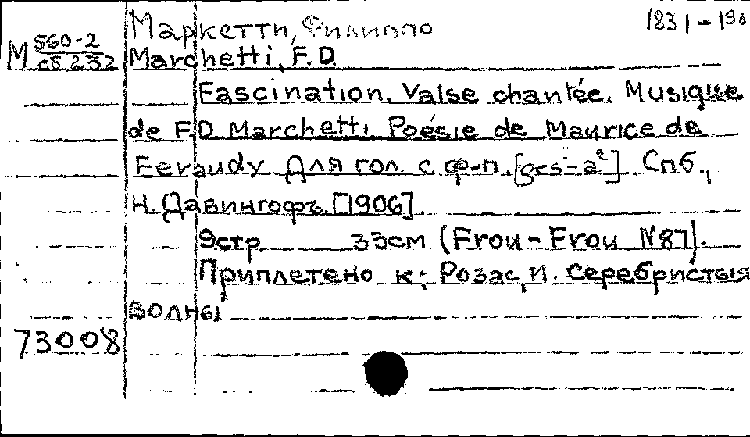 Маркетти, Филиппо 1831-190
М 560-2
сб 232 Marchetti, F.D
Fascination. Valse chantée. Musique
de F.D. Marchetti. Poésie de Maurice de
Feraudy Для гол. с ф-п. [ges-a²] Спб.,
Н. Давингофъ. [1906]
9стр 33см (Frou-Frou №87).
Приплетено к: Розас, И. Серебристыя
волны
73008